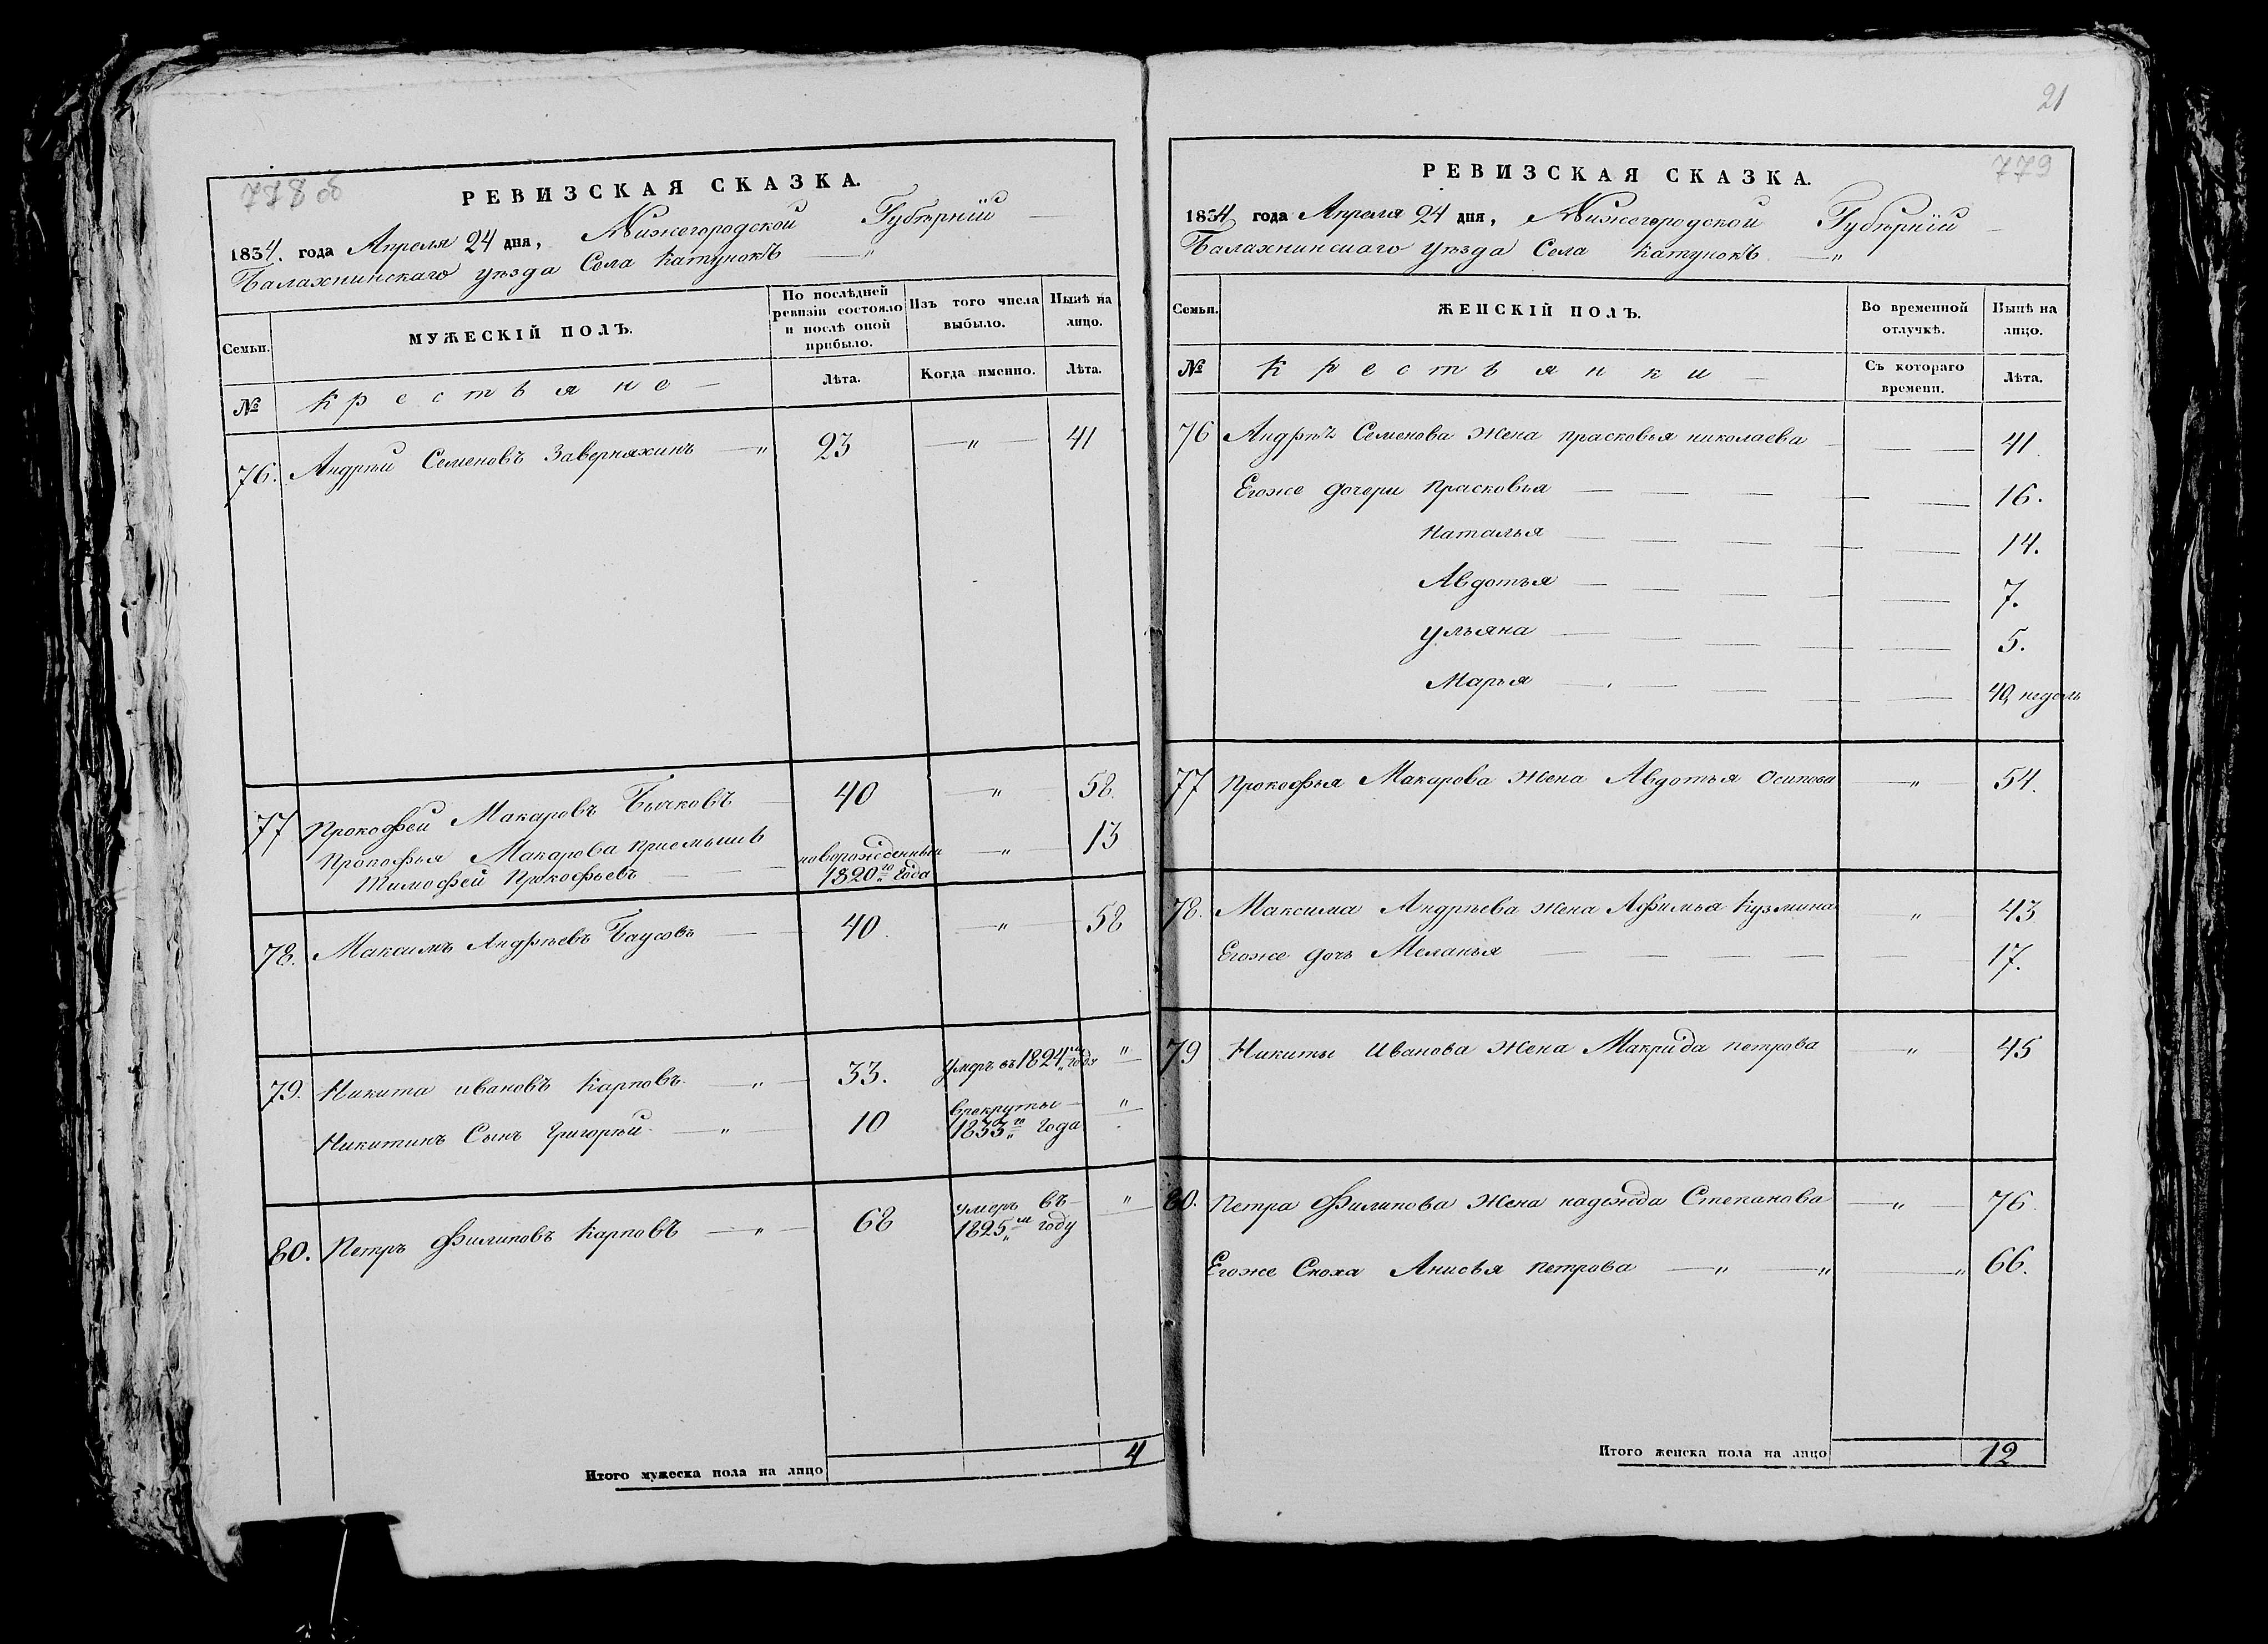 778 об
РЕВИЗСКАЯ СКАЗКА.
1834. года Апреля 24 дня, Нижегородской Губѣрніи
Балахнинскаго уѣзда Села Катунокъ
Семьи. МУЖЕСКІЙ ПОЛЪ. По послѣдней ревизіи состояло и послѣ оной прибыло. Изъ того числа выбыло. Нынѣ на лицо.
№ Крестьяне Лѣта. Когда именно. Лѣта.
76. Андрѣй Семеновъ Заверняхинъ — „ 23 — „ — 41
77 Прокофей Макаровъ Бычковъ 40 — „ — 58.
Прокофья Макарова приемышъ
Тимофей Прокофьевъ новорожденный 1820го года — „ — 13
78. Максимъ Андрѣевъ Баусовъ 40. — „ — 58
79. Никита ивановъ Карповъ „ 33. умеръ въ 1824м годѣ „
Никитинъ Сынъ Григорѣй — „ — 10 врекруты 1833го года „
80. Петръ Филиповъ Карповъ — „ — 68 умеръ въ 1825м году „
Итого мужеска пола на лицо 4
21
779
РЕВИЗСКАЯ СКАЗКА.
1834 года Апреля 24 дня, Нижегородской Губѣрніи
Балахнинскаго уѣзда Села Катунокъ — „
Семьи. ЖЕНСКІЙ ПОЛЪ. Во временной отлучкѣ. Нынѣ на лицо.
№ Крестьянки Съ котораго времени. Лѣта.
76 Андрѣя Семенова Жена прасковья николаева — — 41.
Егоже дочери Прасковья — — — 16.
Наталья — — — 14.
Авдотья — — — 7.
ульяна — — — 5.
Марья — — — 40 недель
77 Прокофья Макарова Жена Авдотья осипова — „ — 54.
78. Максима Андрѣева жена Афимья Кузмина „ 43
Егоже дочь Меланья — — — 17.
79 Никиты Иванова Жена Макрида петрова — „ 45
80. Петра Филипова Жена надежда Степанова — „ — 76.
Егоже Сноха Анисья петрова — „ — „ — „ 66.
Итого женска пола на лицо 12